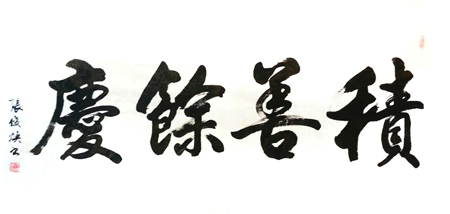 積善餘慶
張俊煥書